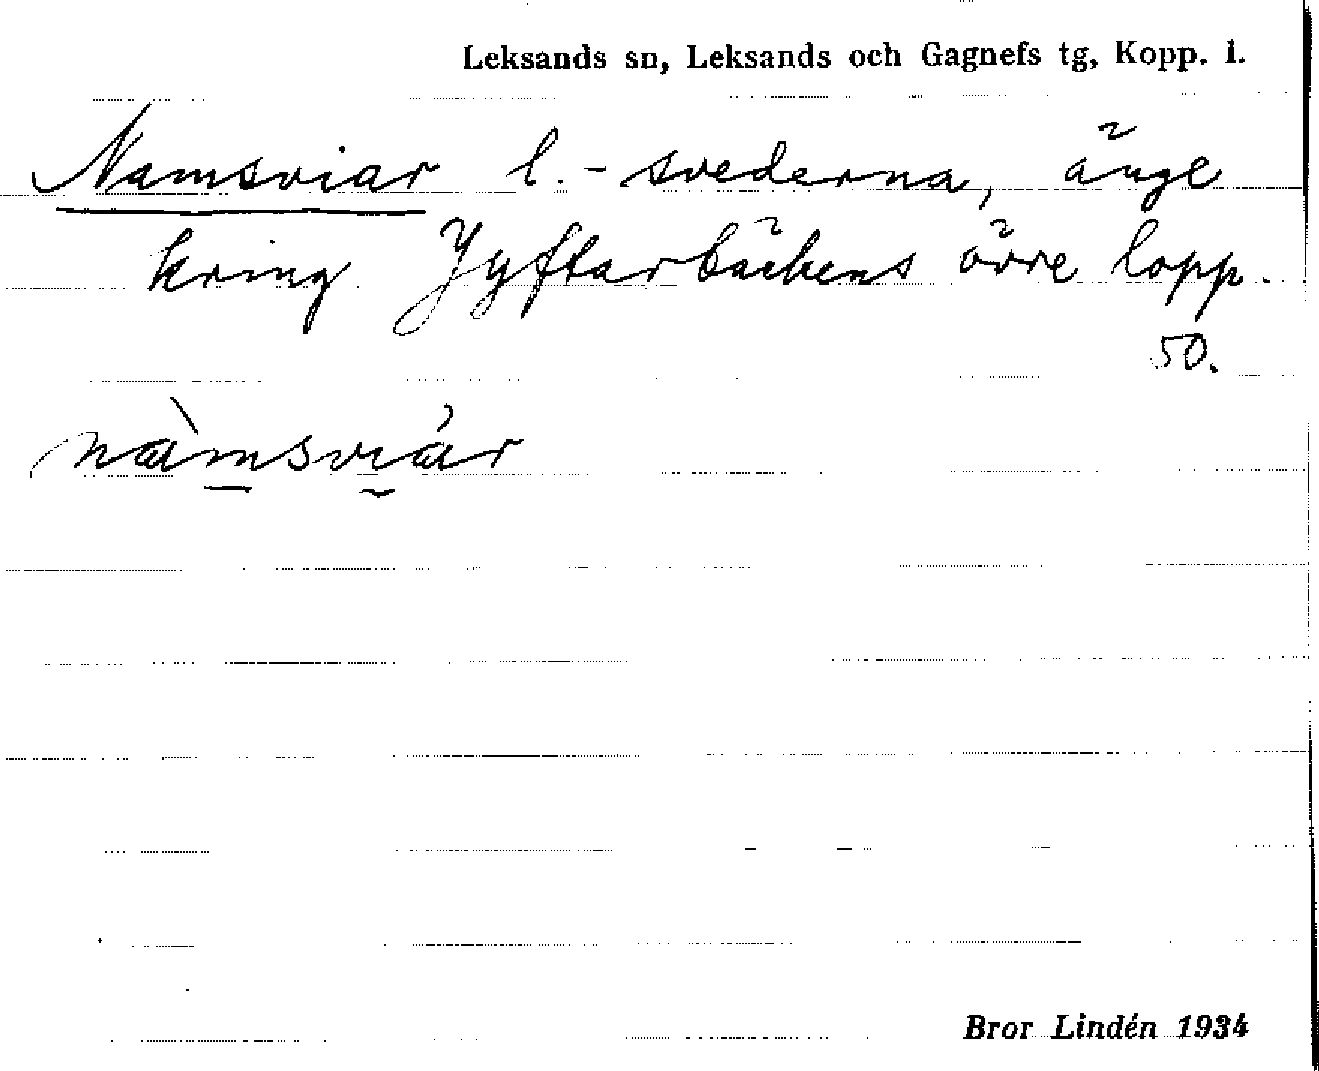 Leksands sn, Leksands och Gagnefs tg, Kopp. l.
Namsviar l. -svederna, änge
kring Jyftarbäckens övre lopp.
50.
nàmsviár
Bror Lindén 1934